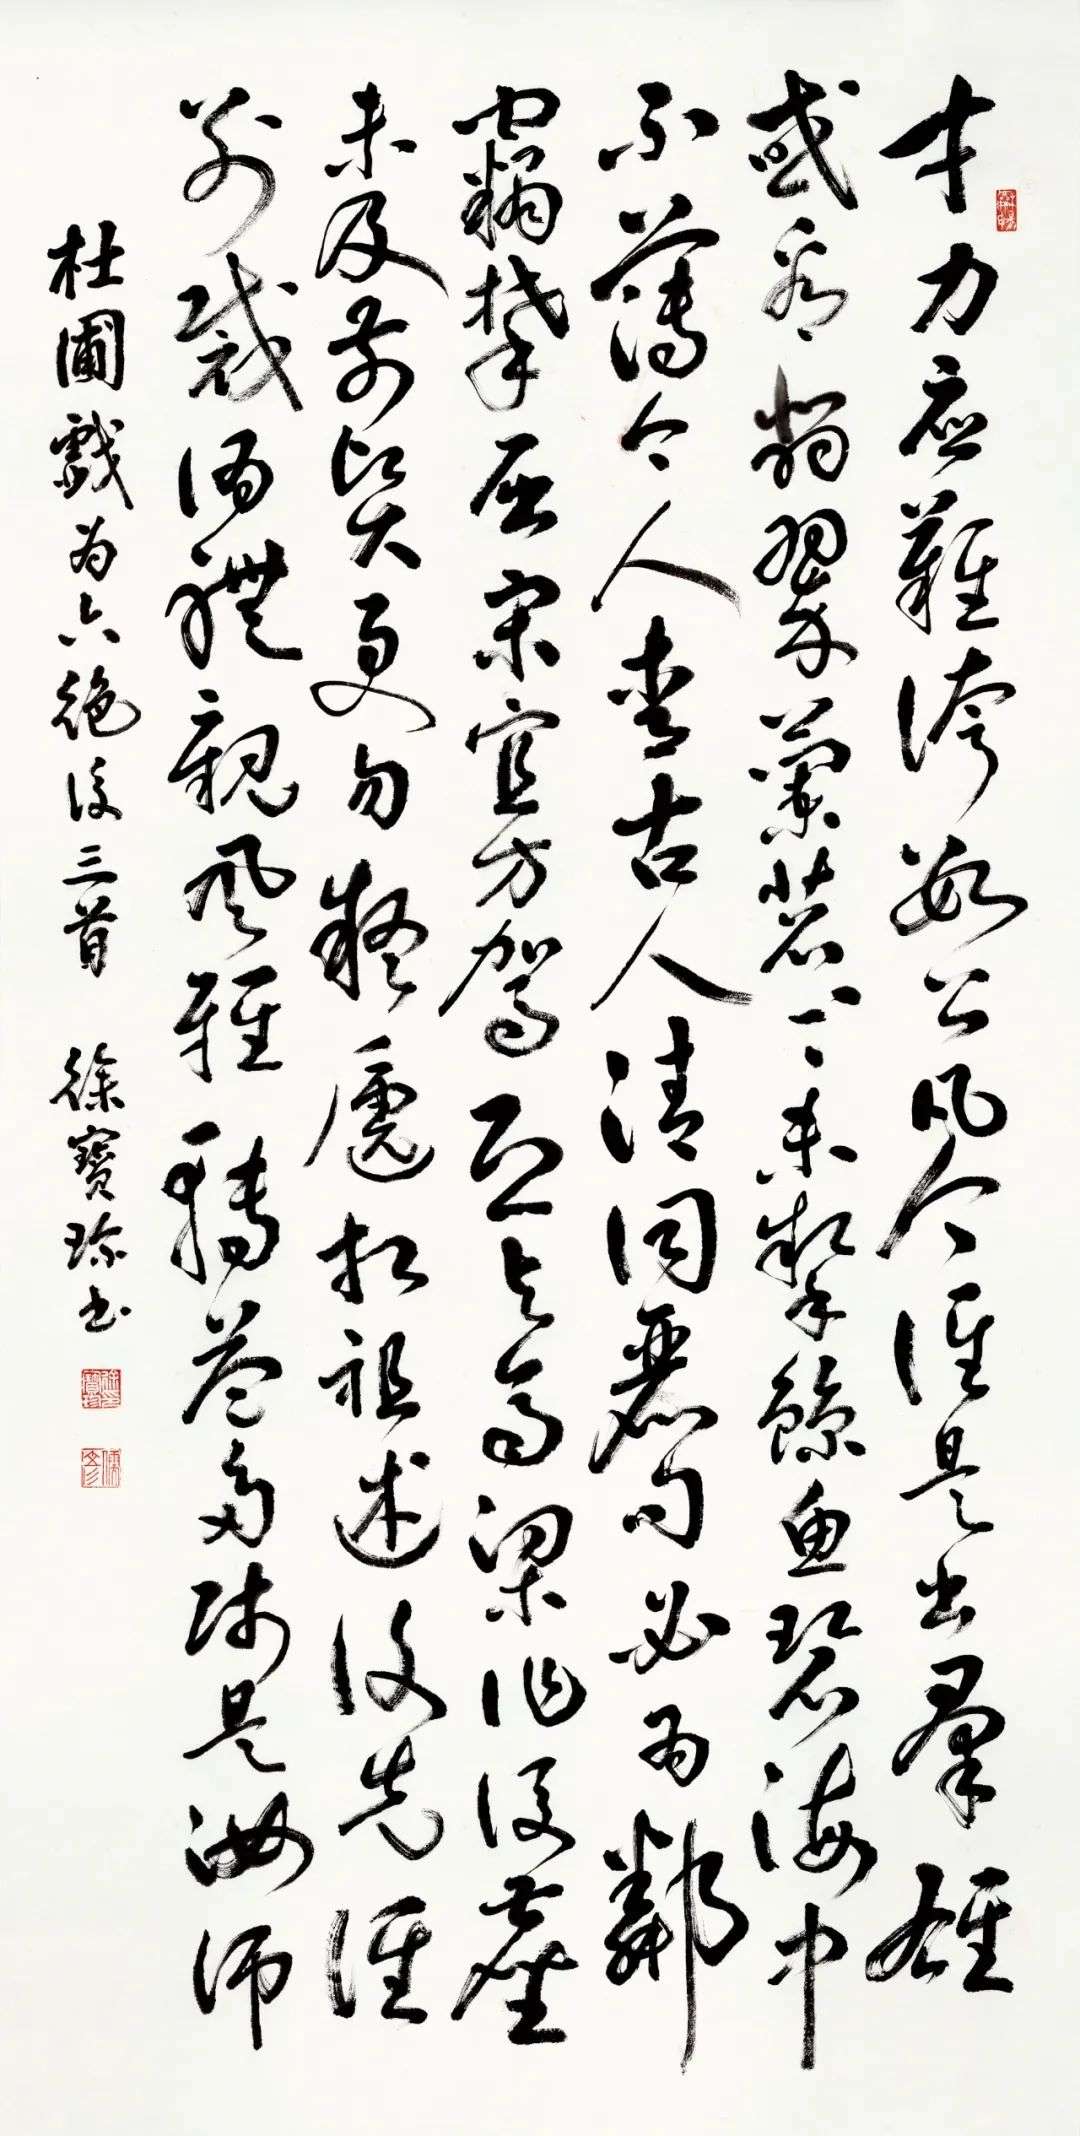 才力應難誇數公凡今誰是出羣雄
或看翡翠蘭苕上未掣鯨魚碧海中
不薄今人愛古人清詞麗句必為鄰
竊攀屈宋宜方駕恐與齊梁作後塵
未及前賢更勿疑遞相祖述復先誰
別裁偽體親風雅轉益多師是汝師
杜圃戲为六絕後三首 徐寶珍書